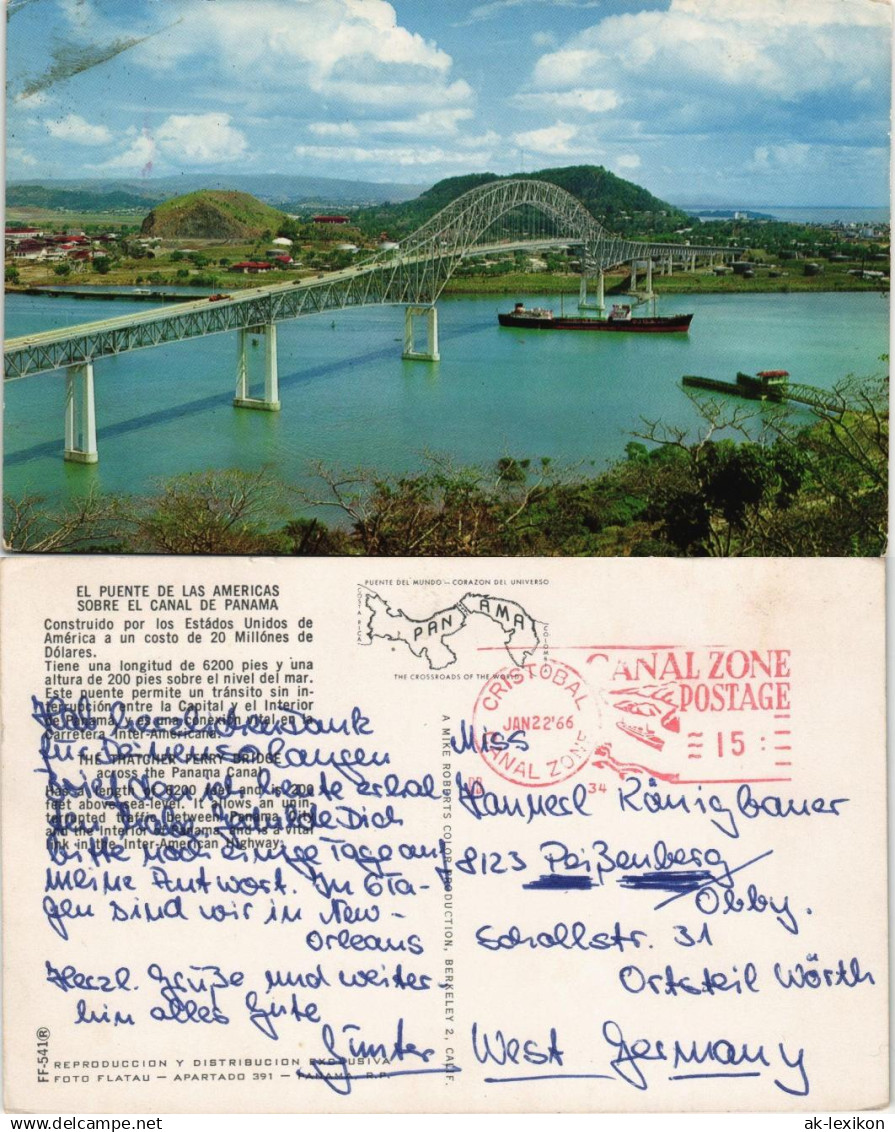 EL PUENTE DE LAS AMERICAS
SOBRE EL CANAL DE PANAMA
Construido por los Estádos Unidos de
América a un costo de 20 Millónes de
Dólares.
Tiene una longitud de 6200 pies y una
altura de 200 pies sobre el nivel del mar.
Este puente permite un tránsito sin in-
terrupción entre la Capital y el Interior
de Panamá, y es una conexión vital en la
Carretera Inter-Americana.
THE THATCHER FERRY BRIDGE
across the Panama Canal
Has a length of 6200 feet and is 200
feet above sea-level. It allows an unin-
terrupted traffic between Panama City
and the Interior of Panama, and is a vital
link in the Inter-American Highway.
Hab herzl. Dank
für Deinen so langen
Brief, den ich heute erhal-
ten habe. Gedulde Dich
bitte noch einige Tage auf
meine Antwort. In 6 Ta-
gen sind wir in New-
Orleans
Herzl. Grüße und weiter-
hin alles Gute
Günter
FF-541 R
REPRODUCCION Y DISTRIBUCION EXCLUSIVA
FOTO FLATAU — APARTADO 391 — PANAMA, R.P.
PUENTE DEL MUNDO — CORAZON DEL UNIVERSO
COSTA RICA
PANAMA
COLOMBIA
THE CROSSROADS OF THE WORLD
A MIKE ROBERTS COLOR PRODUCTION, BERKELEY 2, CALIF.
CRISTOBAL
JAN 22 '66
CANAL ZONE
34
CANAL ZONE
POSTAGE
15
Miss
Hannerl Königbauer
8123 Peißenberg
Obby.
Schollstr. 31
Ortsteil Wörth
West Germany
ak-lexikon